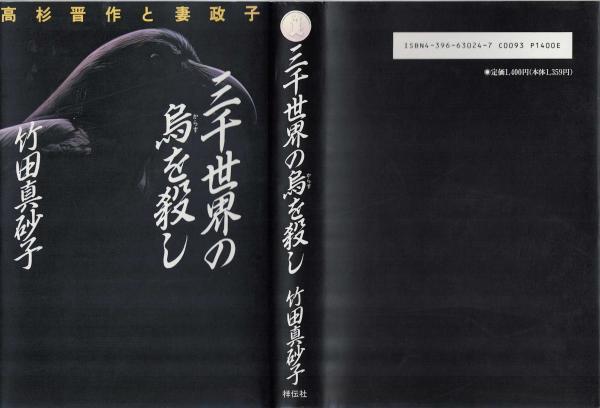 高杉晋作と妻政子
三千世界の
烏を殺し
からす
竹田真砂子
三千世界の烏を殺し
からす
竹田真砂子
祥伝社
ISBN4-396-63024-7 C0093 P1400E
●定価1,400円(本体1,359円)